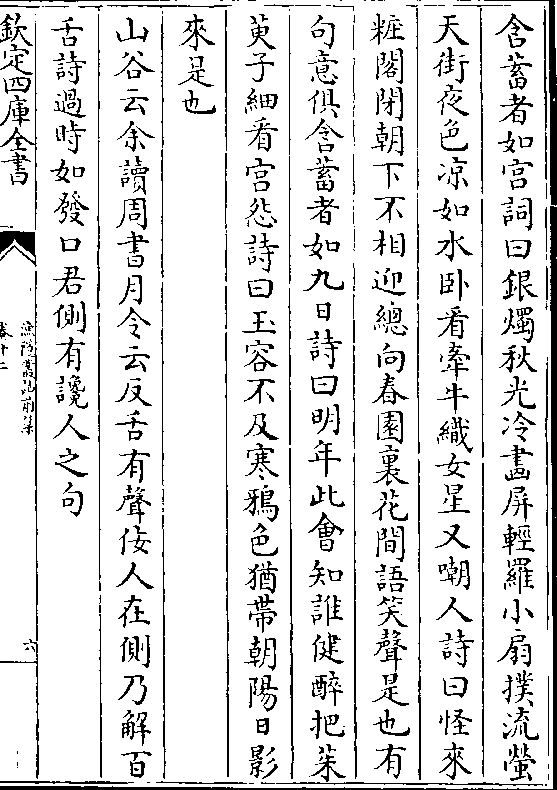 含蓄者如宫詞曰銀燭秋光冷畫屏輕羅小扇撲流螢
天街夜色凉如水卧看牽牛織女星又嘲人詩曰怪來
粧閣閉朝下不相迎總向春園裏花間語笑聲是也有
句意俱含蓄者如九日詩曰明年此會知誰健醉把茱
萸子細看宫怨詩曰玉容不及寒鴉色猶帶朝陽日影
來是也
山谷云余讀周書月令云反舌有聲佞人在側乃解百
舌詩過時如發口君側有讒人之句
欽定四庫全書
漁隱叢話前集
卷十二
六